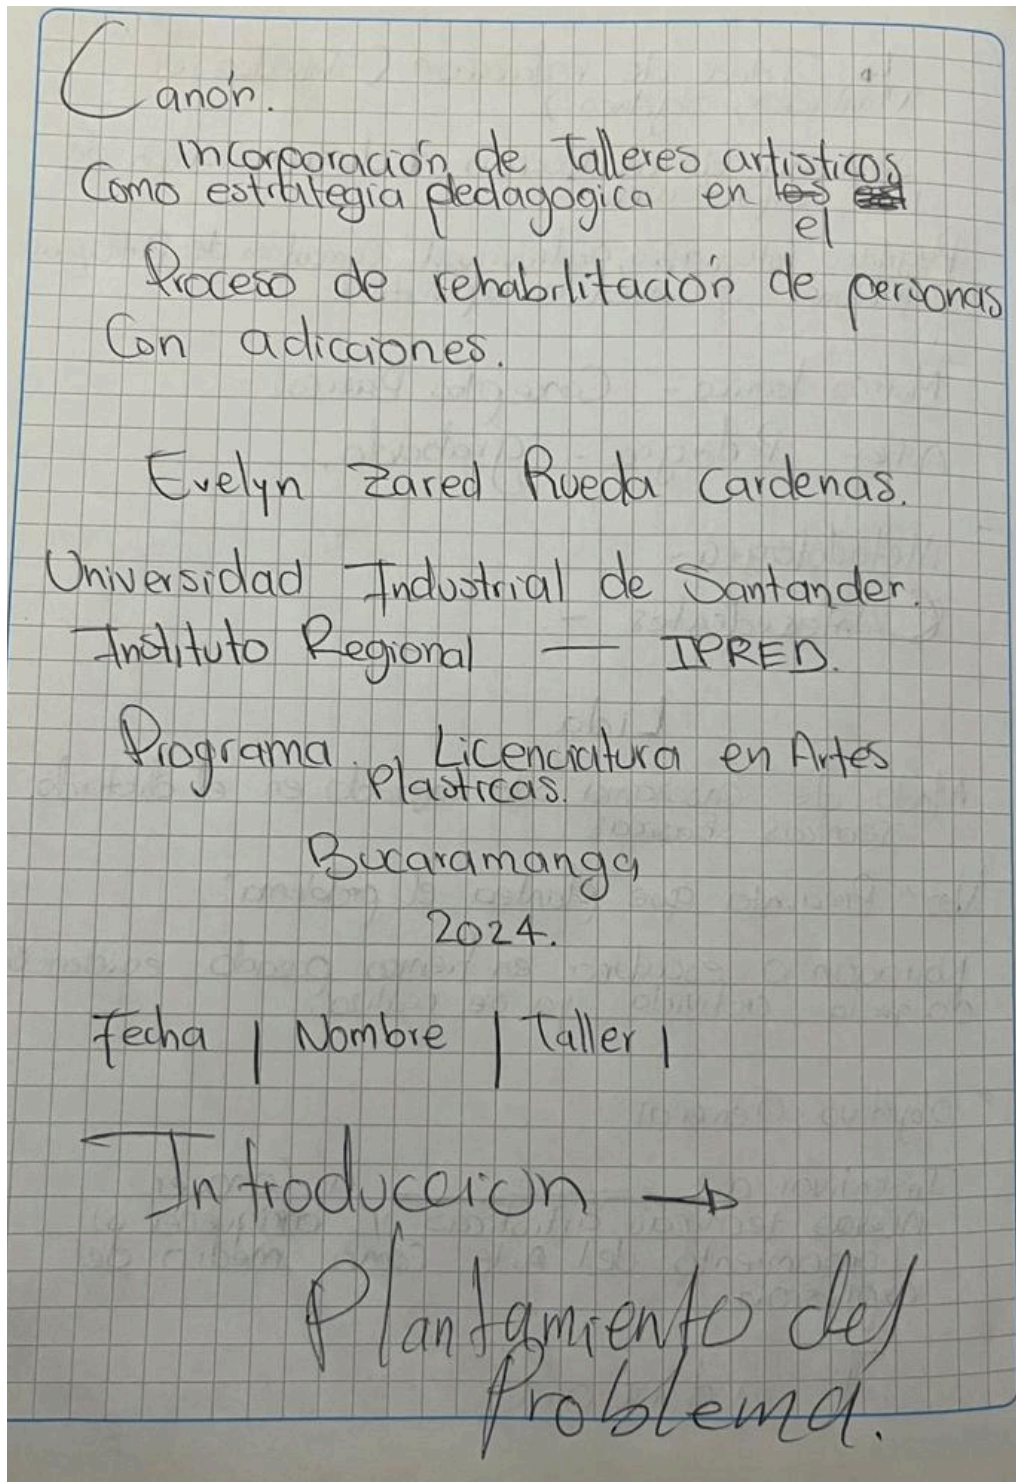 Canón.
incorporación de talleres artisticos
Como estrategia pedagogica en los
el
Proceso de rehabilitación de personas
Con adicciones.
Evelyn Zared Rueda Cardenas.
Universidad Industrial de Santander.
Instituto Regional — IPRED.
Programa. Licenciatura en Artes
Plasticas.
Bucaramanga
2024.
Fecha | Nombre | Taller |
Introducción →
Plantamiento del
Problema.